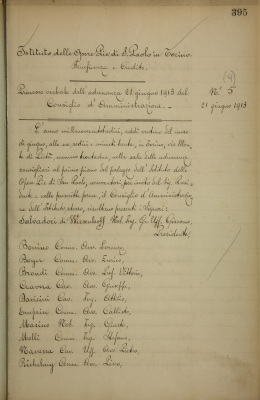 395
Istituto delle Opere Pie di S. Paolo in Torino.
Beneficenza e Credito.
(9)
Processo verbale dell'adunanza 21 giugno 1913 del
Consiglio d'Amministrazione. -
N.° 5
21 giugno 1913
L'anno millenovecentotredici, addì ventuno del mese
di giugno, alle ore undici e minuti trenta, in Torino, via
di Pietà, numero trentadue, nella sala delle adunanze
consigliari al primo piano del palazzo dell'Istituto delle
Opere Pie di San Paolo, convocatosi per invito del Sig. Presi-
dente e nelle prescritte forme, il Consiglio di Amministrazio-
ne dell'Istituto stesso, risultano presenti i Signori:
Salvadori di Wiesenhoff Nob. Ing. Gr. Uff. Giacomo,
Presidente,
Bonino Comm. Avv. Lorenzo,
Comm. Avv.
Biondi Comm. Avv. Vittorio,
Cravosa Cav. Avv. Giuseppe,
Cav. Ing. Attilio,
Comm. Avv. Callisto,
Masino Nob. Ing.
Molli Comm. Ing. Stefano,
Navarra Cav. Uff. Avv. Pietro,
Comm. Avv.